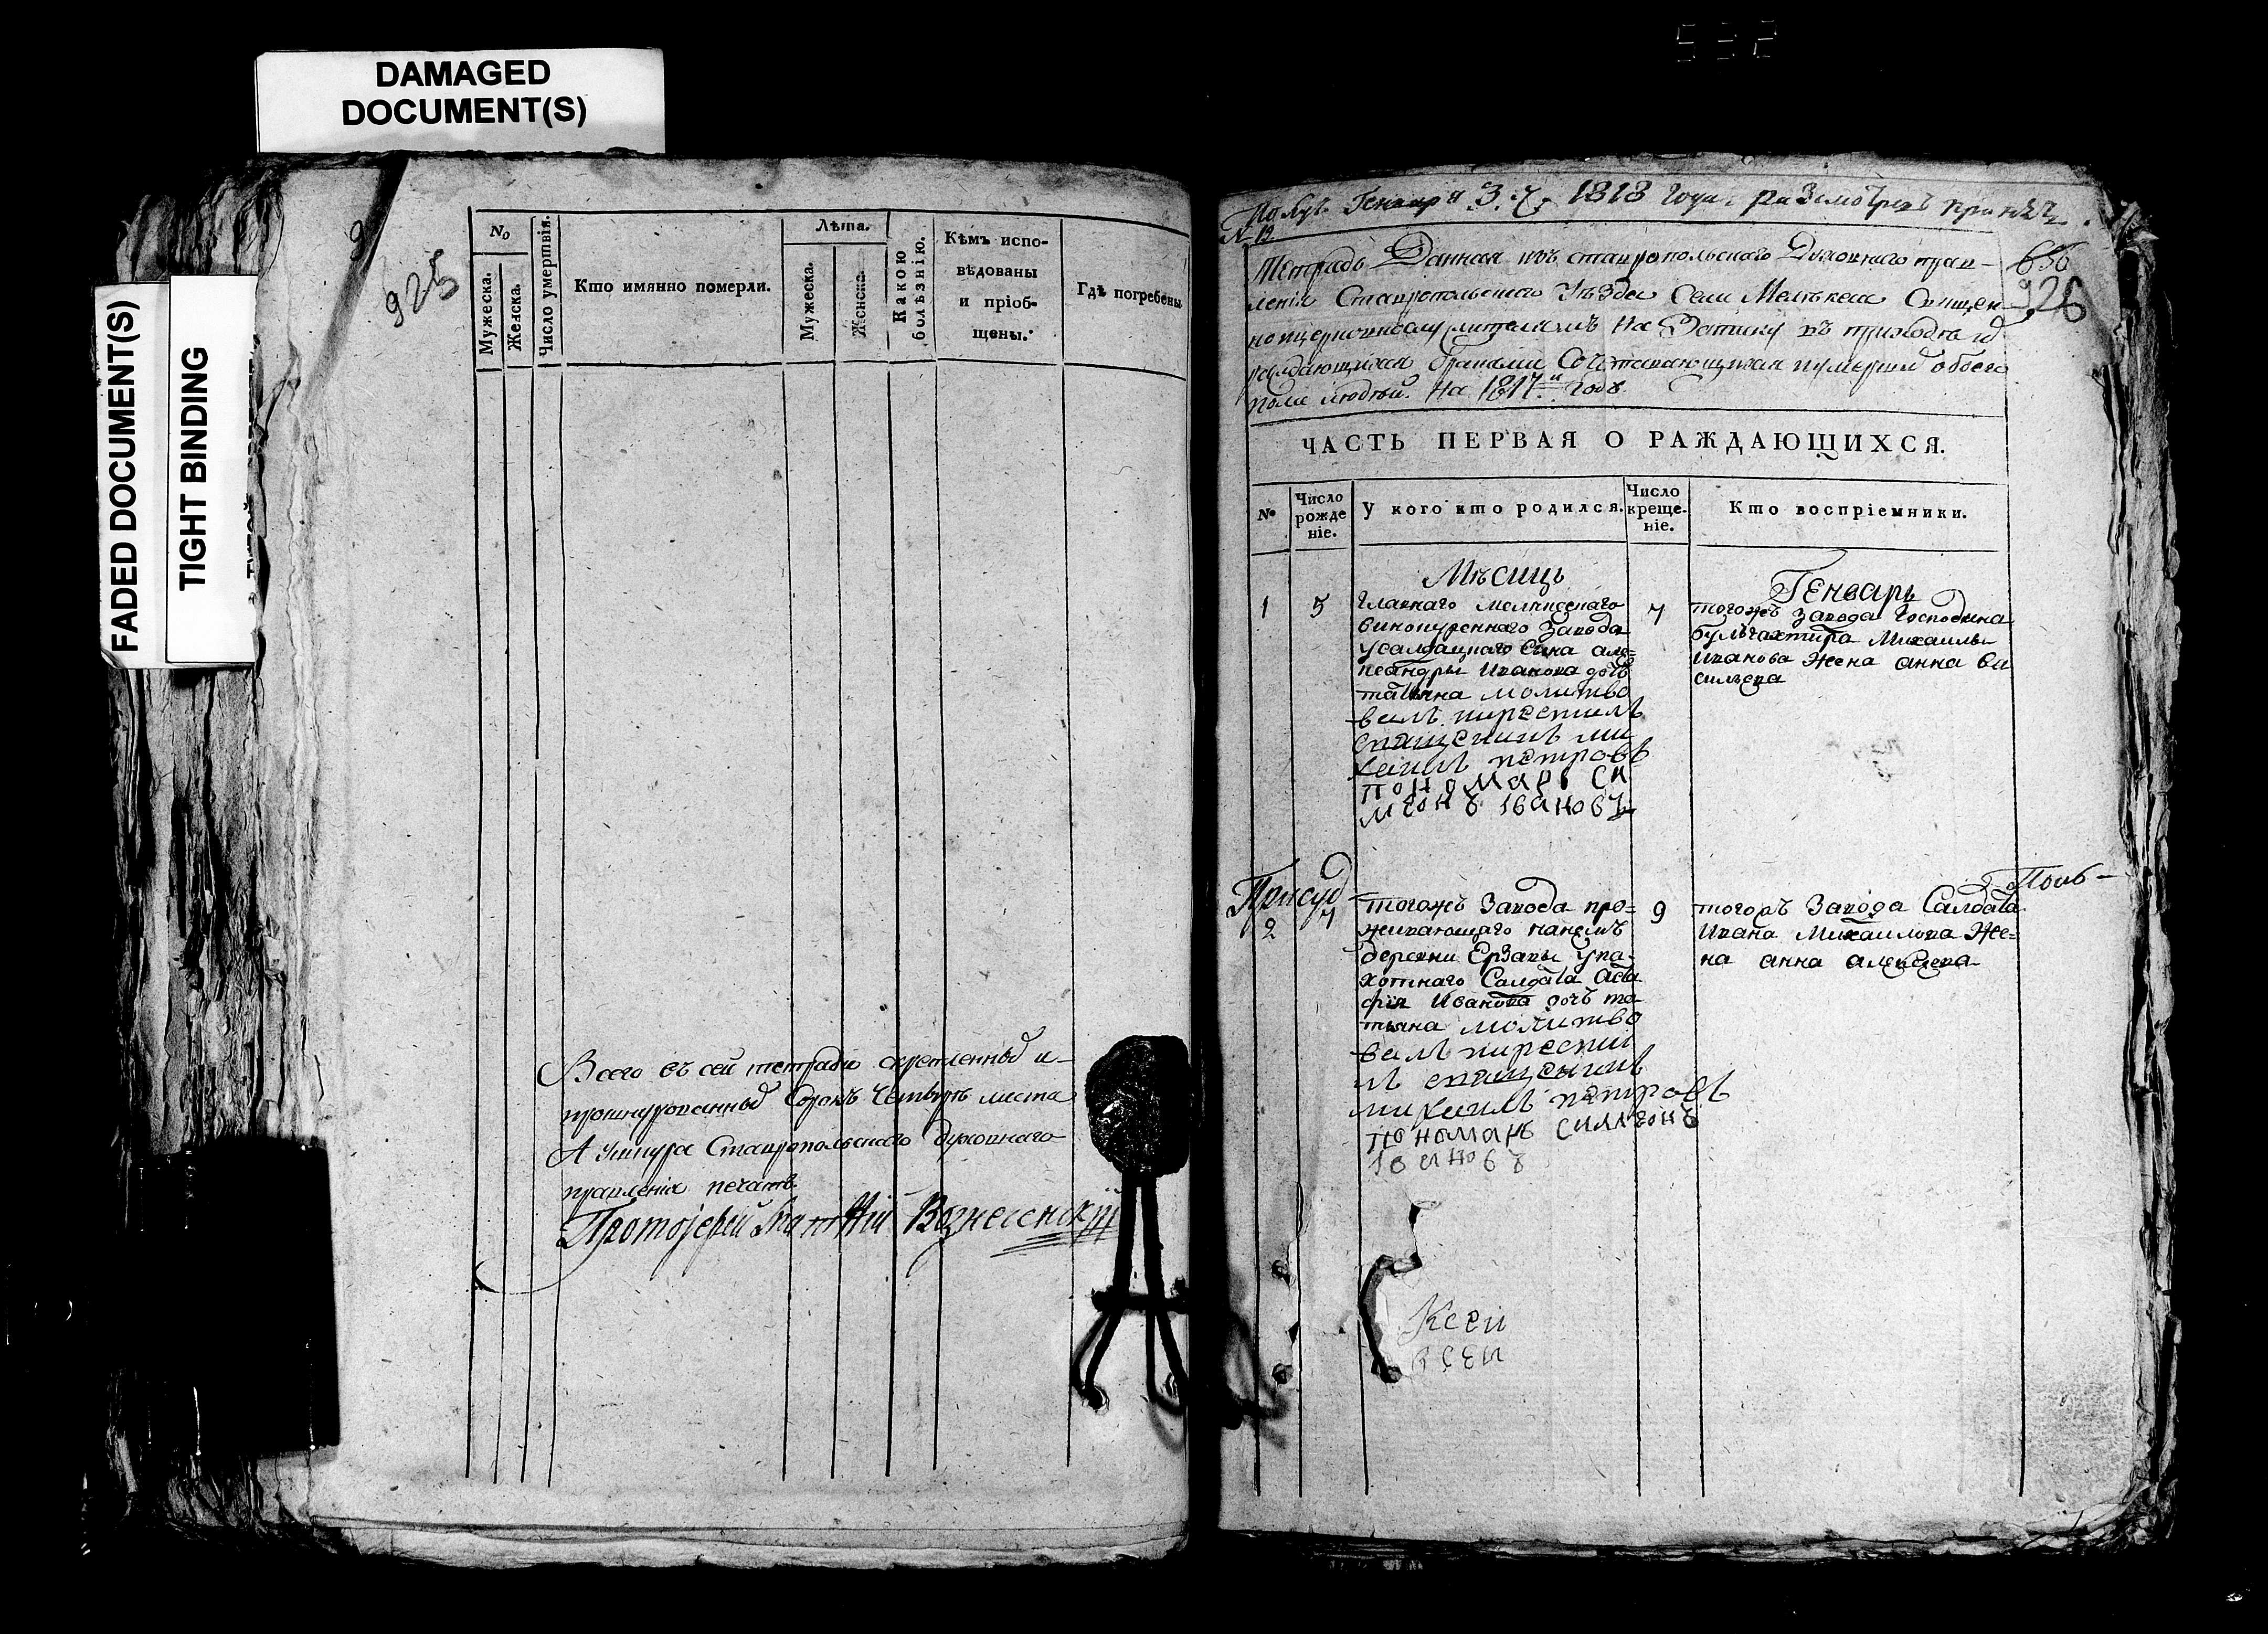 532
DAMAGED
DOCUMENT(S)
FADED DOCUMENT(S)
TIGHT BINDING
925
№
Мужеска.
Женска.
Число умертвія.
Кто имянно померли.
Лѣта.
Мужеска.
Женска.
Какою болѣзнію.
Кѣмъ испо-
вѣдованы
и пріоб-
щены.
Гдѣ погребены
Всего въ сей тетради скрепленныхъ и
прошнурованныхъ Сорокъ Четыре листа
А у шнура Ставропольскаго духовнаго
правленія печать
Протоіерей Вознесенскій
Получ. Генваря 3. ч. 1818 года
№ 19
Тетрадь Данная изъ ставропольскаго Духовнаго прав-
ленія Ставропольскаго Уѣзда Села Мелекеса Священ-
ноцерковнослужителямъ На Записку въ приходѣ их
раждающихся браками Сочетавающихся иумерших обоего
пола людей. На 1817й годъ.
656
926
ЧАСТЬ ПЕРВАЯ О РАЖДАЮЩИХСЯ.
№
Число
рожде
ніе.
У кого кто родился.
Число
креще-
ніе.
Кто воспріемники.
Мѣсицъ
Генварь
1
5
главнаго мелекескаго
винокуреннаго Завода
усалдацкаго Сына але=
ксандры Иванова дочь
татьяна молитво
валъ икрестилъ
священникъ ми
хаилъ петровъ
пономарь си
меонъ Iвановъ
7
тогожъ Завода Господина
бульгахтира Михаилы
Иванова Жена анна ва
сильева
Присуд
2
7
тогожъ Завода про=
живающаго нанемъ
деревни Ерзавы упа-
хотнаго Салдата Аста
фия Иванова дочь та-
тьяна молитво
валъ икрести
лъ священникъ
михаилъ петровъ
пономарь симеонъ
Iвановъ
9
тогожъ Завода Салдата
Ивана Михаилова Же=
на анна алексеева
Ксеи
всеи